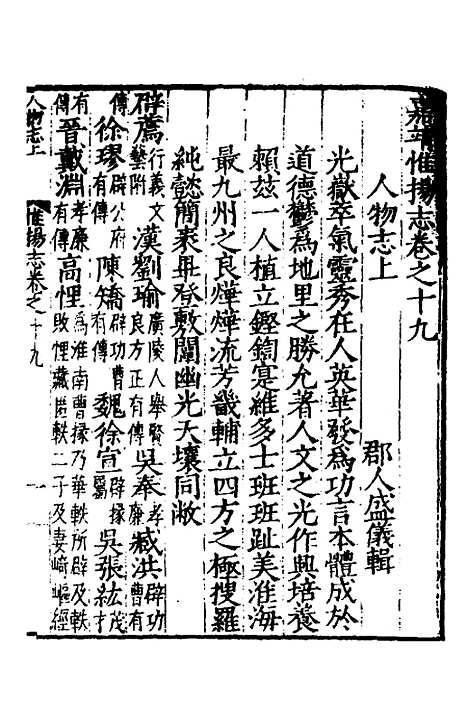 嘉靖惟揚志卷之十九
人物志上
郡人盛儀輯
光嶽萃氣靈秀在人英華發為功言本體成於
道德鬱為地里之勝允著人文之光作興培養
賴茲一人植立鏗鍧寔維多士班班趾美淮海
最九州之良燁燁流芳畿輔立四方之極搜羅
純懿簡表毋登敷闡幽光天壤同敝
辟薦行義文學附漢劉瑜廣陵人舉賢良方正有傳吳奉孝廉臧洪辟功曹有傳
徐璆辟公府有傳陳矯辟功曹有傳魏徐宣辟掾屬吳張紘茂才
有傳晉戴淵孝廉有傳高悝為淮南曹掾乃華軼所辟及軼敗悝藏匿軼二子及妻崎嶇經
人物志上
惟揚志卷之十九
一